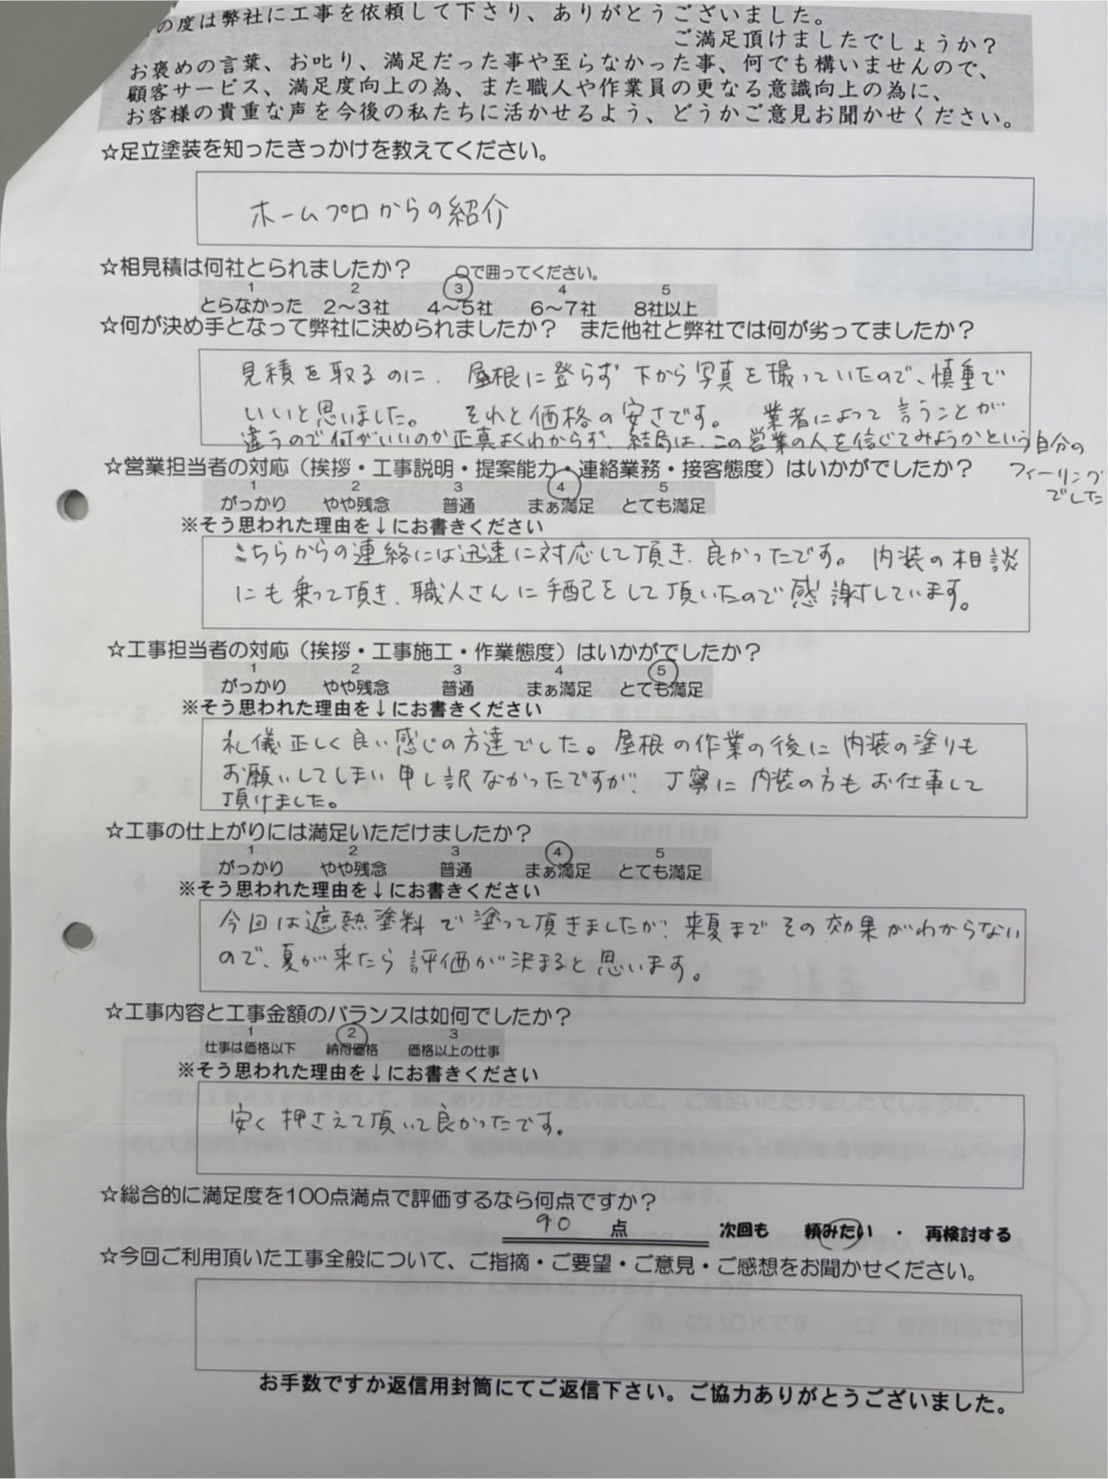 の度は弊社に工事を依頼して下さり、ありがとうございました。
ご満足頂けましたでしょうか?
お褒めの言葉、お叱り、満足だった事や至らなかった事、何でも構いませんので、
顧客サービス、満足度向上の為、また職人や作業員の更なる意識向上の為に、
お客様の貴重な声を今後の私たちに活かせるよう、どうかご意見お聞かせください。
☆足立塗装を知ったきっかけを教えてください。
ホームプロからの紹介
☆相見積は何社とられましたか? ○で囲ってください。
1 2 3 4 5
とらなかった 2〜3社 4〜5社 6〜7社 8社以上
☆何が決め手となって弊社に決められましたか? また他社と弊社では何が劣ってましたか?
見積を取るのに、屋根に登らず下から写真を撮っていたので、慎重で
いいと思いました。 それと価格の安さです。 業者によって言うことが
違うので何がいいのか正真よくわからず、結局は、この営業の人を信じてみようかという自分の
フィーリング
でした
☆営業担当者の対応(挨拶・工事説明・提案能力・連絡業務・接客態度)はいかがでしたか?
1 2 3 4 5
がっかり やや残念 普通 まぁ満足 とても満足
※そう思われた理由を↓にお書きください
こちらからの連絡には迅速に対応して頂き、良かったです。 内装の相談
にも乗って頂き、職人さんに手配をして頂いたので感謝しています。
☆工事担当者の対応(挨拶・工事施工・作業態度)はいかがでしたか?
1 2 3 4 5
がっかり やや残念 普通 まぁ満足 とても満足
※そう思われた理由を↓にお書きください
礼儀正しく良い感じの方達でした。屋根の作業の後に内装の塗りも
お願いしてしまい申し訳なかったですが、丁寧に内装の方もお仕事して
頂けました。
☆工事の仕上がりには満足いただけましたか?
1 2 3 4 5
がっかり やや残念 普通 まぁ満足 とても満足
※そう思われた理由を↓にお書きください
今回は遮熱塗料で塗って頂きましたが、来夏までその効果がわからない
ので、夏が来たら評価が決まると思います。
☆工事内容と工事金額のバランスは如何でしたか?
1 2 3
仕事は価格以下 納得価格 価格以上の仕事
※そう思われた理由を↓にお書きください
安く押さえて頂いて良かったです。
☆総合的に満足度を100点満点で評価するなら何点ですか?
90 点 次回も 頼みたい ・ 再検討する
☆今回ご利用頂いた工事全般について、ご指摘・ご要望・ご意見・ご感想をお聞かせください。
お手数ですか返信用封筒にてご返信下さい。ご協力ありがとうございました。